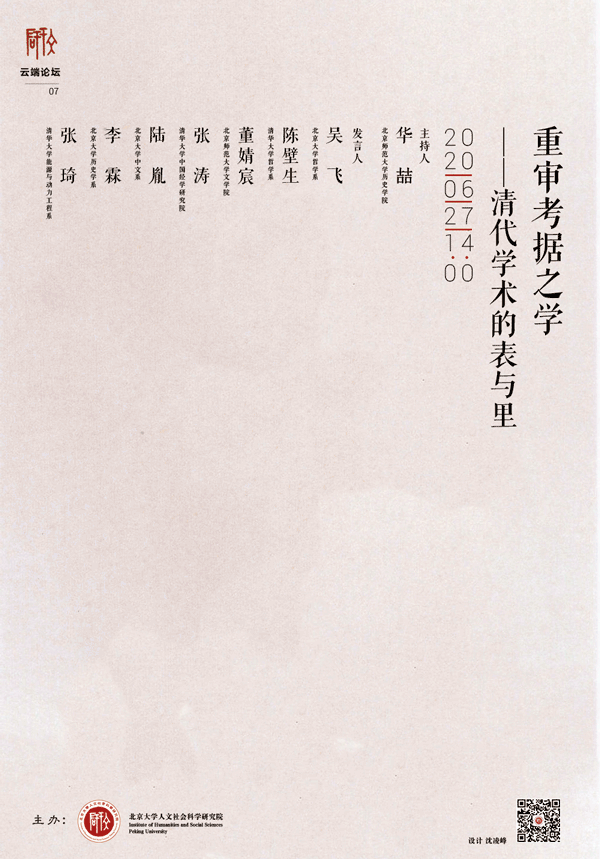 重审考据之学
——清代学术的表与里
20
20
06
27
14
:
00
主持人
华喆
北京师范大学历史学院
发言人
吴飞
北京大学哲学系
陈壁生
清华大学哲学系
董婧宸
北京师范大学文学院
张涛
清华大学中国经学研究院
陆胤
北京大学中文系
李霖
北京大学历史学系
张琦
清华大学能源与动力工程系
云端论坛
07
主办:
北京大学人文社会科学研究院
Institute of Humanities and Social Sciences
Peking University
设计 沈凌峰